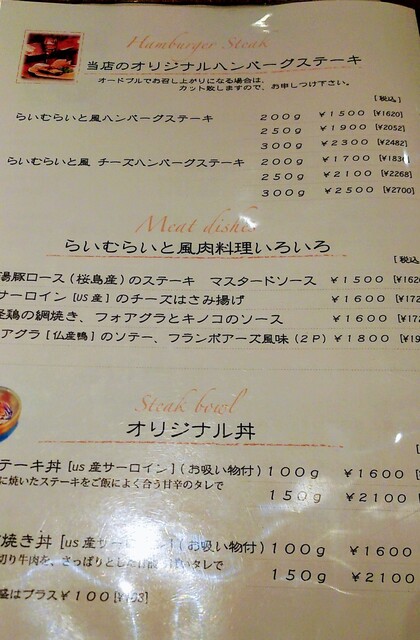 Hamburger Steak
当店のオリジナルハンバーグステーキ
オードブルでお召し上がりになる場合は、
カット致しますので、お申しつけ下さい。
[税込]
らいむらいと風ハンバーグステーキ 200g ¥1500 [¥1620]
250g ¥1900 [¥2052]
300g ¥2300 [¥2482]
らいむらいと風 チーズハンバーグステーキ 200g ¥1700 [¥183
250g ¥2100 [¥2268]
300g ¥2500 [¥2700]
Meat dishes
らいむらいと風肉料理いろいろ
[税込
湯豚ロース(桜島産)のステーキ マスタードソース ¥1500 [¥162
サーロイン[US産]のチーズはさみ揚げ ¥1600 [¥172
鶏の網焼き、フォアグラとキノコのソース ¥1600 [¥172
アグラ[仏産鴨]のソテー、フランボアーズ風味(2P) ¥1800 [¥19
Steak bowl
オリジナル丼
テーキ丼[us産サーロイン](お吸い物付) 100g ¥1600 [
に焼いたステーキをご飯によく合う甘辛のタレで 150g ¥2100
焼き丼[us産サーロイン](お吸い物付) 100g ¥1600
切り牛肉を、さっぱりとした タレで 150g ¥2100
盛はプラス¥100